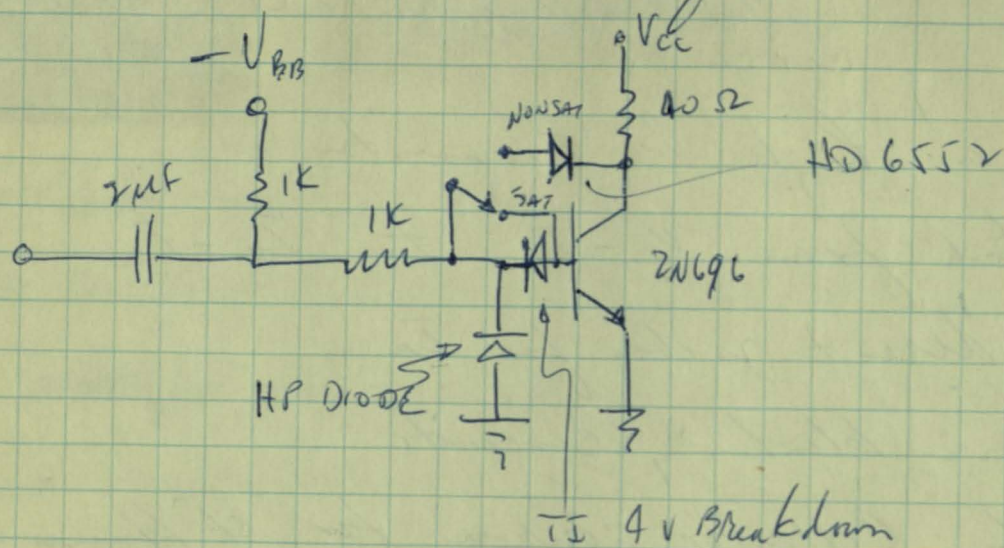 - VBB
VCC
40 Ω
NONSAT
HD 6552
2µf
1K
1K
SAT
2N696
HP DIODE
TI 4 v Breakdown